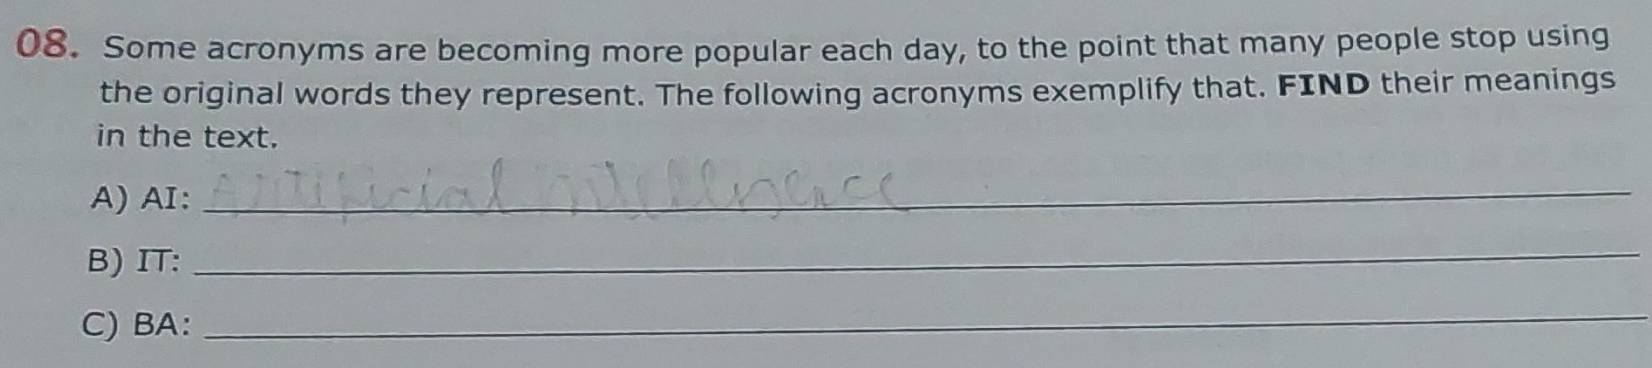 08. Some acronyms are becoming more popular each day, to the point that many people stop using
the original words they represent. The following acronyms exemplify that. FIND their meanings
in the text.
A) AI: Artificial
B) IT:
C) BA: